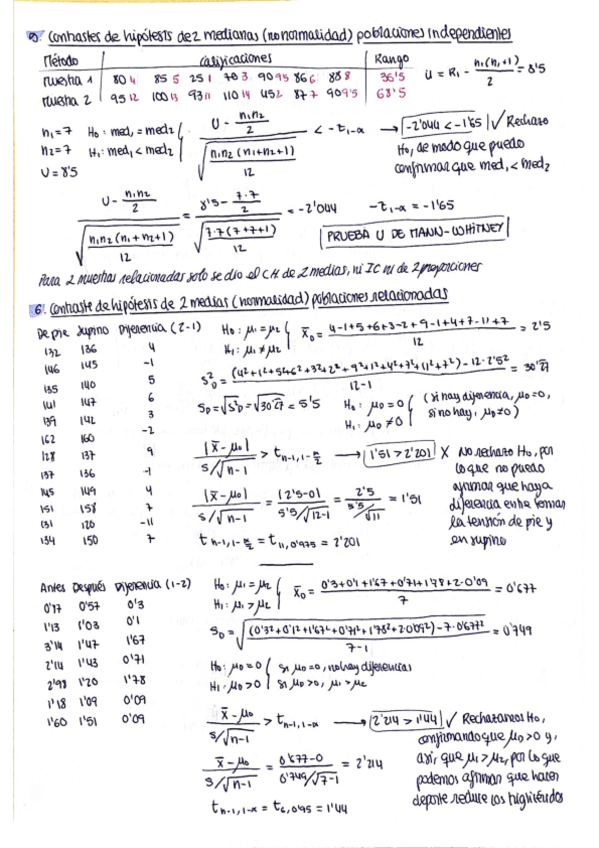 5. Contrastes de hipótesis de 2 medianas (no normalidad) poblaciones independientes
Método Calificaciones Rango
Muestra 1 80 4 85 5 25 1 70 3 90 9'5 86 6 88 8 36'5
Muestra 2 95 12 100 13 93 11 110 14 45 2 87 7 90 9'5 68'5
U = R₁ - n₁(n₁+1)/2 = 8'5
n₁=7 H₀: med₁ = med₂
n₂=7 H₁: med₁ < med₂
U = 8'5
(U - n₁n₂/2) / √(n₁n₂(n₁+n₂+1)/12) < -z₁₋α → -2'044 < -1'65 ✓ Rechazo
H₀, de modo que puedo
confirmar que med₁ < med₂
(U - n₁n₂/2) / √(n₁n₂(n₁+n₂+1)/12) = (8'5 - 7·7/2) / √(7·7(7+7+1)/12) = -2'044 -z₁₋α = -1'65
PRUEBA U DE MANN-WHITNEY
Para 2 muestras relacionadas solo se dio el CH de 2 medias, ni IC ni de 2 proporciones
6. Contraste de hipótesis de 2 medias (normalidad) poblaciones relacionadas
De pie Supino Diferencia (2-1)
132 136 4
146 145 -1
135 140 5
141 147 6
139 142 3
162 160 -2
128 137 9
137 136 -1
145 149 4
151 158 7
131 120 -11
134 150 7
H₀: μ₁ = μ₂
H₁: μ₁ ≠ μ₂
x̄_D = (4-1+5+6+3-2+9-1+4+7-11+7)/12 = 2'5
S²_D = ((4²+1²+5²+6²+3²+2²+9²+1²+4²+7²+11²+7²) - 12·2'5²)/(12-1) = 30'27
S_D = √S²_D = √30'27 = 5'5 H₀: μ_D = 0 (si hay diferencia, μ_D=0,
H₁: μ_D ≠ 0 si no hay, μ_D≠0)
|x̄-μ₀| / (s/√n-1) > t n-1, 1-α/2 → 1'51 > 2'201 X No rechazo H₀, por
lo que no puedo
afirmar que haya
diferencia entre tomar
la tensión de pie y
en supino
|x̄-μ₀| / (s/√n-1) = |2'5-0| / (5'5/√12-1) = 2'5 / (5'5/√11) = 1'51
t n-1, 1-α/2 = t 11, 0'975 = 2'201
Antes Después Diferencia (1-2)
0'17 0'57 0'3
1'13 1'03 0'1
3'14 1'47 1'67
2'14 1'43 0'71
2'98 1'20 1'78
1'18 1'09 0'09
1'60 1'51 0'09
H₀: μ₁ = μ₂
H₁: μ₁ > μ₂
x̄_D = (0'3+0'1+1'67+0'71+1'78+2·0'09)/7 = 0'677
S_D = √(((0'3²+0'1²+1'67²+0'71²+1'78²+2·0'09²) - 7·0'677²)/(7-1)) = 0'749
H₀: μ_D = 0 Si μ_D = 0, no hay diferencias
H₁: μ_D > 0 Si μ_D > 0, μ₁ > μ₂
(x̄-μ₀) / (s/√n-1) > t n-1, 1-α → 2'214 > 1'44 ✓ Rechazamos H₀,
confirmando que μ_D > 0 y,
así, que μ₁ > μ₂, por lo que
podemos afirmar que hacer
deporte reduce los triglicéridos
(x̄-μ₀) / (s/√n-1) = (0'677-0) / (0'749/√7-1) = 2'214
t n-1, 1-α = t 6, 0'95 = 1'44